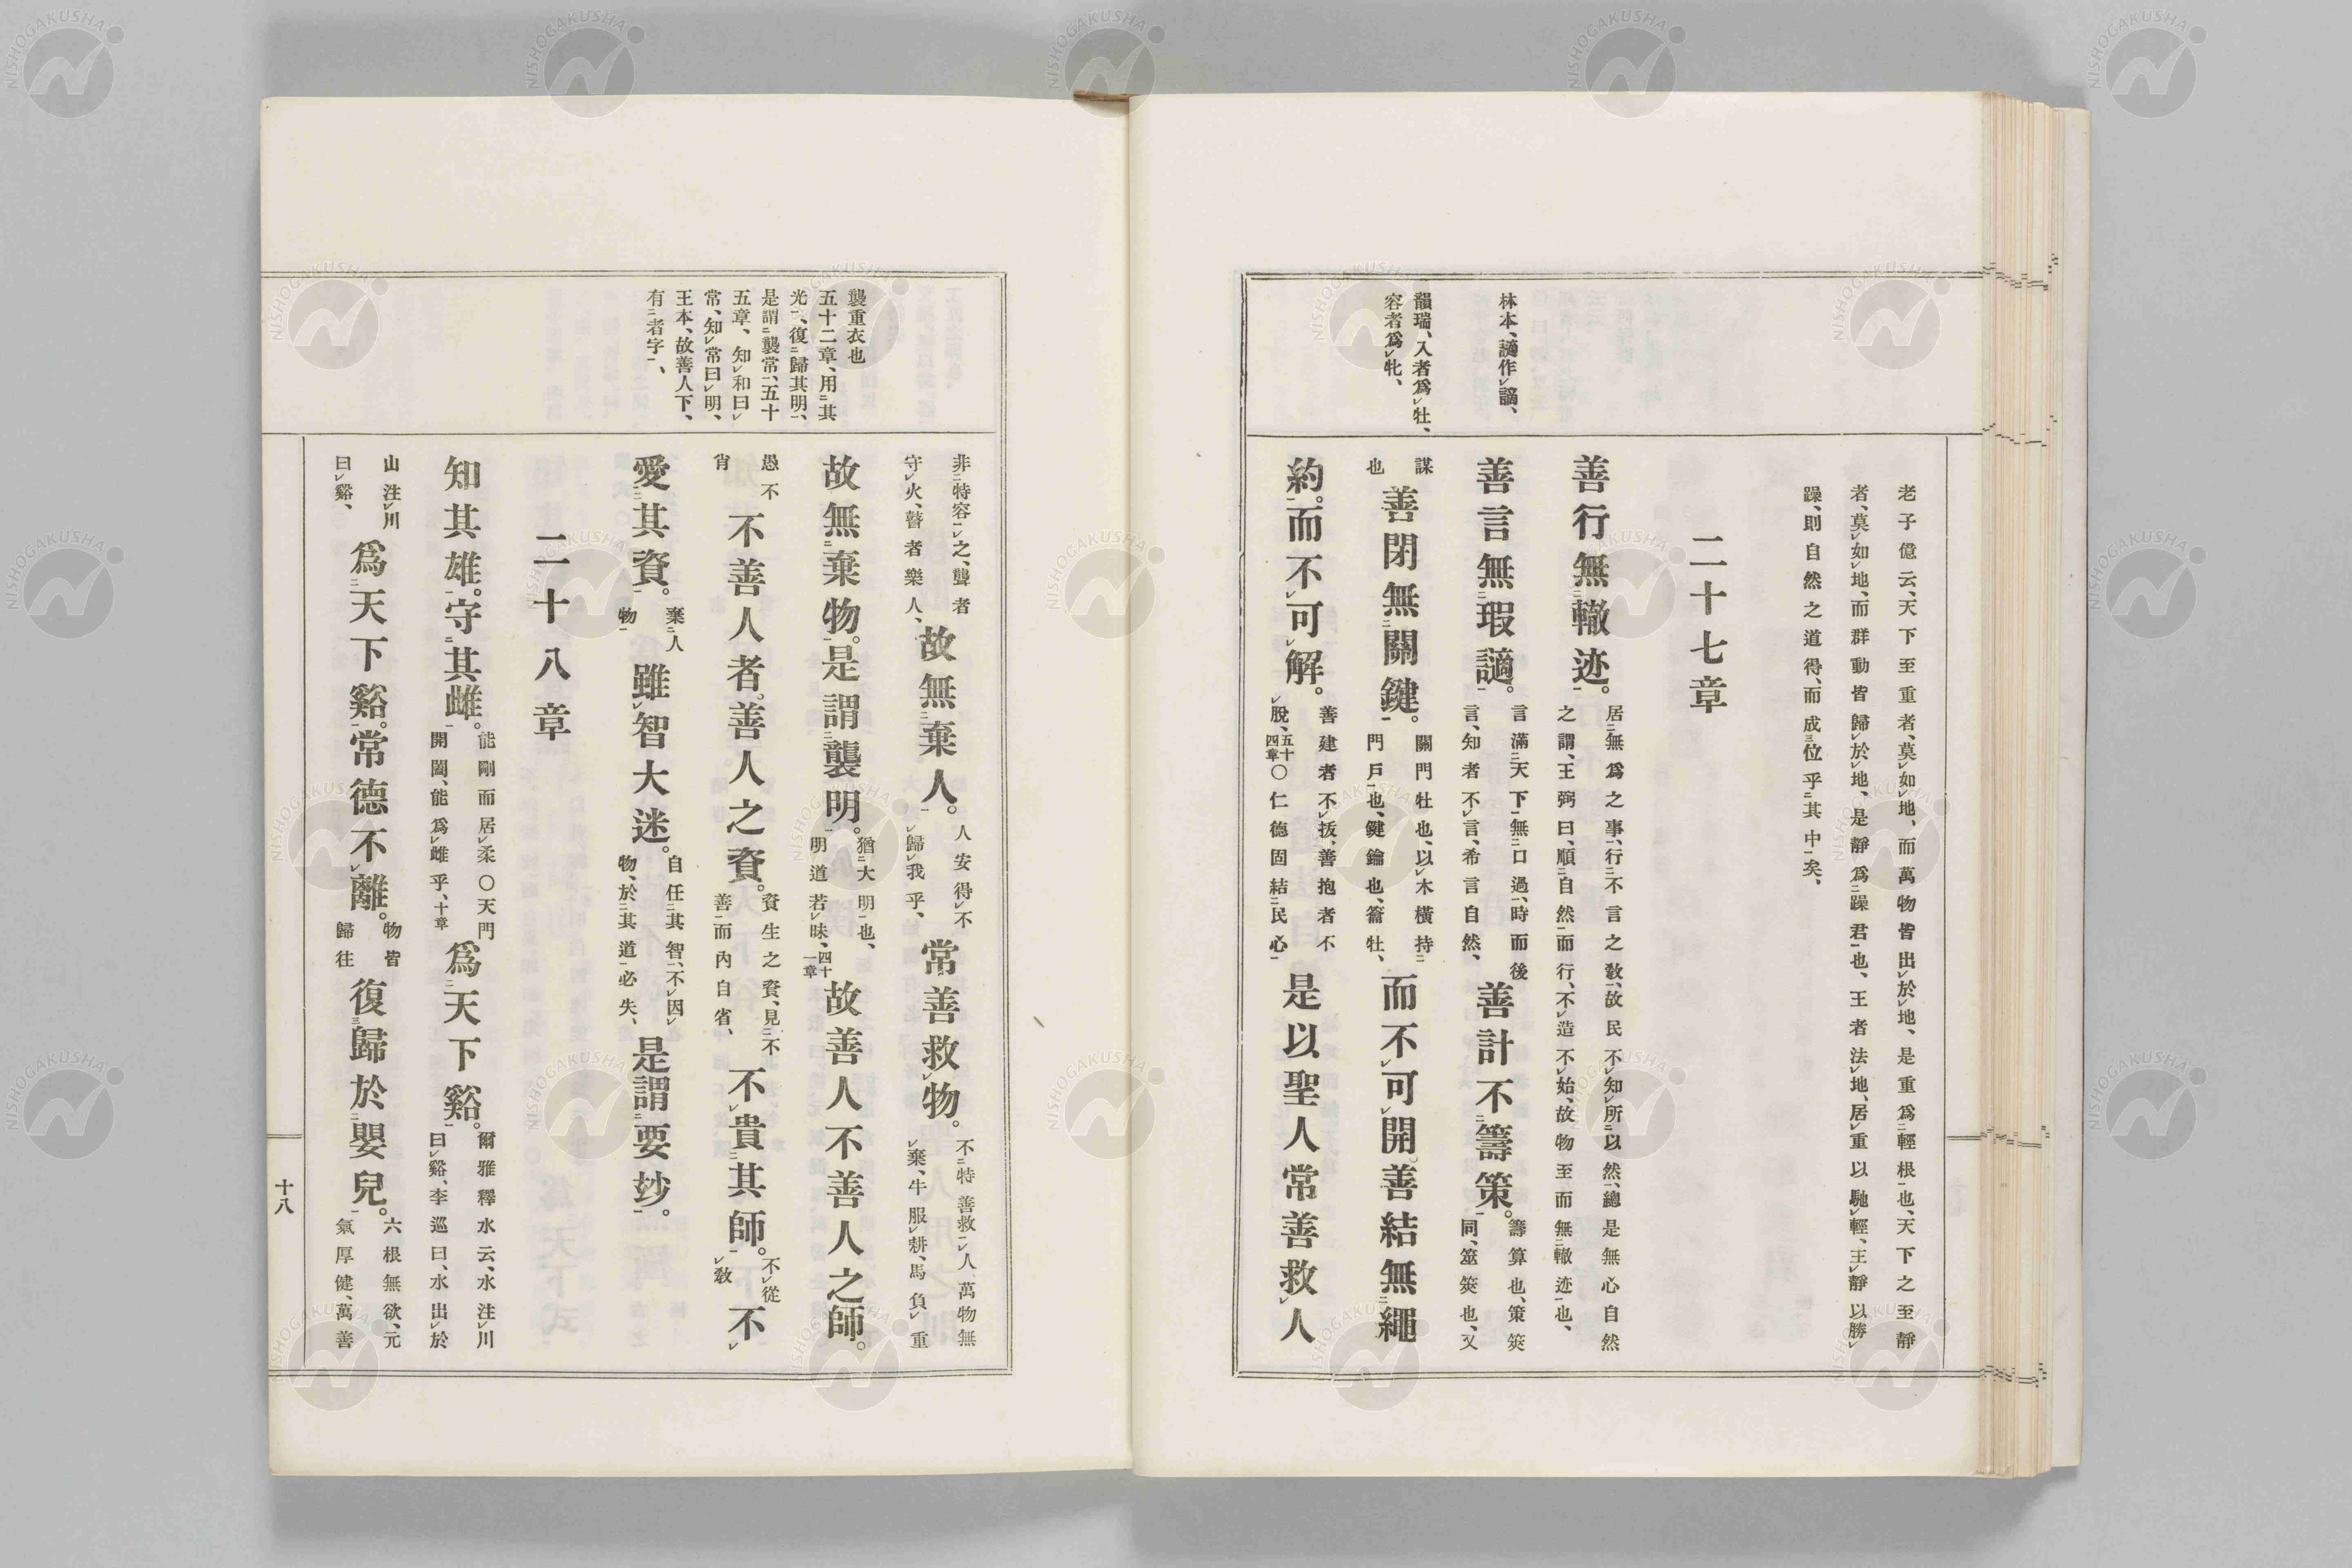 林本、謫作讁、
韻瑞、入者爲牡、
容者爲牝、
老子億云、天下至重者、莫如地、而萬物皆出於地、是重爲輕根也、天下之至靜
者、莫如地、而群動皆歸於地、是靜爲躁君也、王者法地、居重以馳輕、王靜以勝
躁、則自然之道得、而成位乎其中矣、
二十七章
善行無轍迹。
居無爲之事、行不言之敎、故民不知所以然、總是無心自然
之謂、王弼曰、順自然而行、不造不始、故物至而無轍迹也、
善言無瑕謫。
言滿天下無口過、時而後
言、知者不言、希言自然、
善計不籌策。
籌算也、策筴
同、筮筴也、又
謀
也
善閉無關鍵。
關門牡也、以木橫持
門戶也、鍵鑰也、籥牡、
而不可開。善結無繩
約。而不可解。
善建者不拔、善抱者不
脫、五十四章○仁德固結民心
是以聖人常善救人
襲重衣也
五十二章、用其
光、復歸其明、
是謂襲常、五十
五章、知和曰
常、知常曰明、
王本、故善人下、
有者字、
非特容之、聾者
守火、瞽者樂人、
故無棄人。
人安得不
歸我乎、
常善救物。
不特善救人、萬物無
棄、牛服耕、馬負重
故無棄物。是謂襲明。
猶大明也、
明道若昧、四十一章
故善人不善人之師。
愚不
肖
不善人者、善人之資。
資生之資、見不
善而內自省、
不貴其師。
不從
敎
不
愛其資。
棄人
物
雖智大迷。
自任其智、不因
物、於其道必失、
是謂要妙。
二十八章
知其雄。守其雌。
能剛而居柔○天門
開闔、能爲雌乎、十章
爲天下谿。
爾雅釋水云、水注川
曰谿、李巡曰、水出於
山注川
曰谿、
爲天下谿。常德不離。
物皆
歸往
復歸於嬰兒。
六根無欲、元
氣厚健、萬善
十八